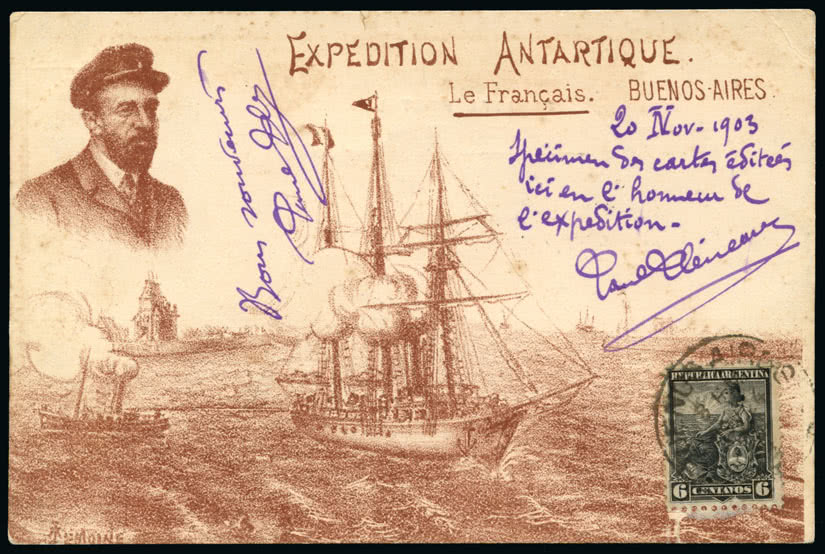 EXPEDITION ANTARTIQUE.
Le Français. BUENOS-AIRES
20 Nov. 1903
Specimen des cartes éditées
ici en l'honneur de
l'expedition.
Paul
Bons souvenirs
Paul
REPUBLICA ARGENTINA
6 CENTAVOS 6